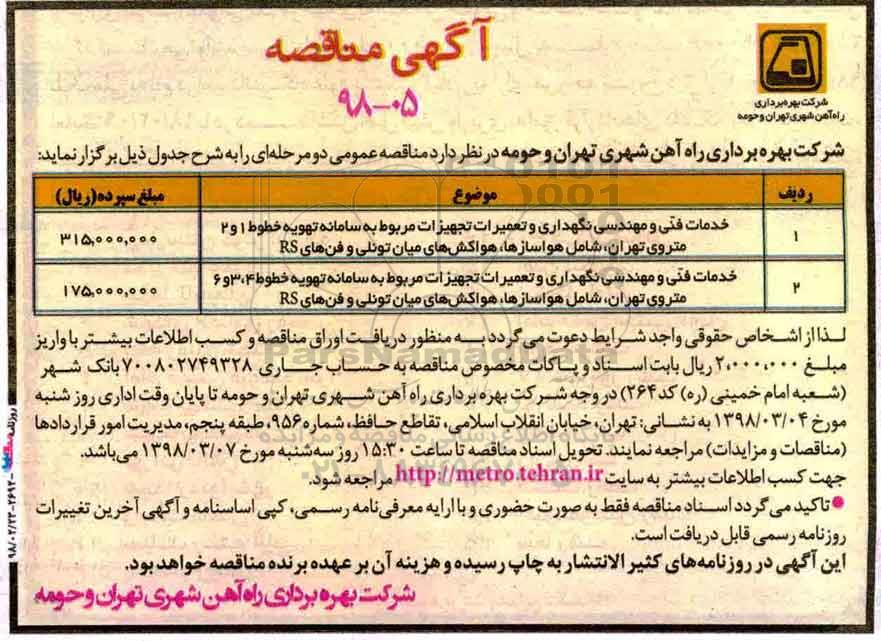 آگهی مناقصه
۹۸-۰۵
شرکت بهره‌برداری
راه‌آهن شهری تهران و حومه
شرکت بهره‌برداری راه آهن شهری تهران و حومه در نظر دارد مناقصه عمومی دو مرحله‌ای را به شرح جدول ذیل برگزار نماید:
ردیف موضوع مبلغ سپرده (ریال)
۱ خدمات فنّی و مهندسی نگهداری و تعمیرات تجهیزات مربوط به سامانه تهویه خطوط ۱ و ۲ ۳۱۵,۰۰۰,۰۰۰
متروی تهران، شامل هواسازها، هواکش‌های میان تونلی و فن‌های RS
۲ خدمات فنّی و مهندسی نگهداری و تعمیرات تجهیزات مربوط به سامانه تهویه خطوط ۳،۴ و ۶ ۱۷۵,۰۰۰,۰۰۰
متروی تهران، شامل هواسازها، هواکش‌های میان تونلی و فن‌های RS
لذا از اشخاص حقوقی واجد شرایط دعوت می‌گردد به منظور دریافت اوراق مناقصه و کسب اطلاعات بیشتر با واریز
مبلغ ۲,۰۰۰,۰۰۰ ریال بابت اسناد و پاکات مخصوص مناقصه به حساب جاری ۷۰۰۸۰۲۷۴۹۳۲۸ بانک شهر
(شعبه امام خمینی (ره) کد ۲۶۴) در وجه شرکت بهره برداری راه آهن شهری تهران و حومه تا پایان وقت اداری روز شنبه
مورخ ۱۳۹۸/۰۳/۰۴ به نشانی: تهران، خیابان انقلاب اسلامی، تقاطع حافظ، شماره ۹۵۶، طبقه پنجم، مدیریت امور قراردادها
(مناقصات و مزایدات) مراجعه نمایند. تحویل اسناد مناقصه تا ساعت ۱۵:۳۰ روز سه‌شنبه مورخ ۱۳۹۸/۰۳/۰۷ می‌باشد.
جهت کسب اطلاعات بیشتر به سایت http://metro.tehran.ir مراجعه شود.
● تاکید می‌گردد اسناد مناقصه فقط به صورت حضوری و با ارایه معرفی‌نامه رسمی، کپی اساسنامه و آگهی آخرین تغییرات
روزنامه رسمی قابل دریافت است.
این آگهی در روزنامه‌های کثیر الانتشار به چاپ رسیده و هزینه آن بر عهده برنده مناقصه خواهد بود.
شرکت بهره برداری راه آهن شهری تهران و حومه
ParsNamadData